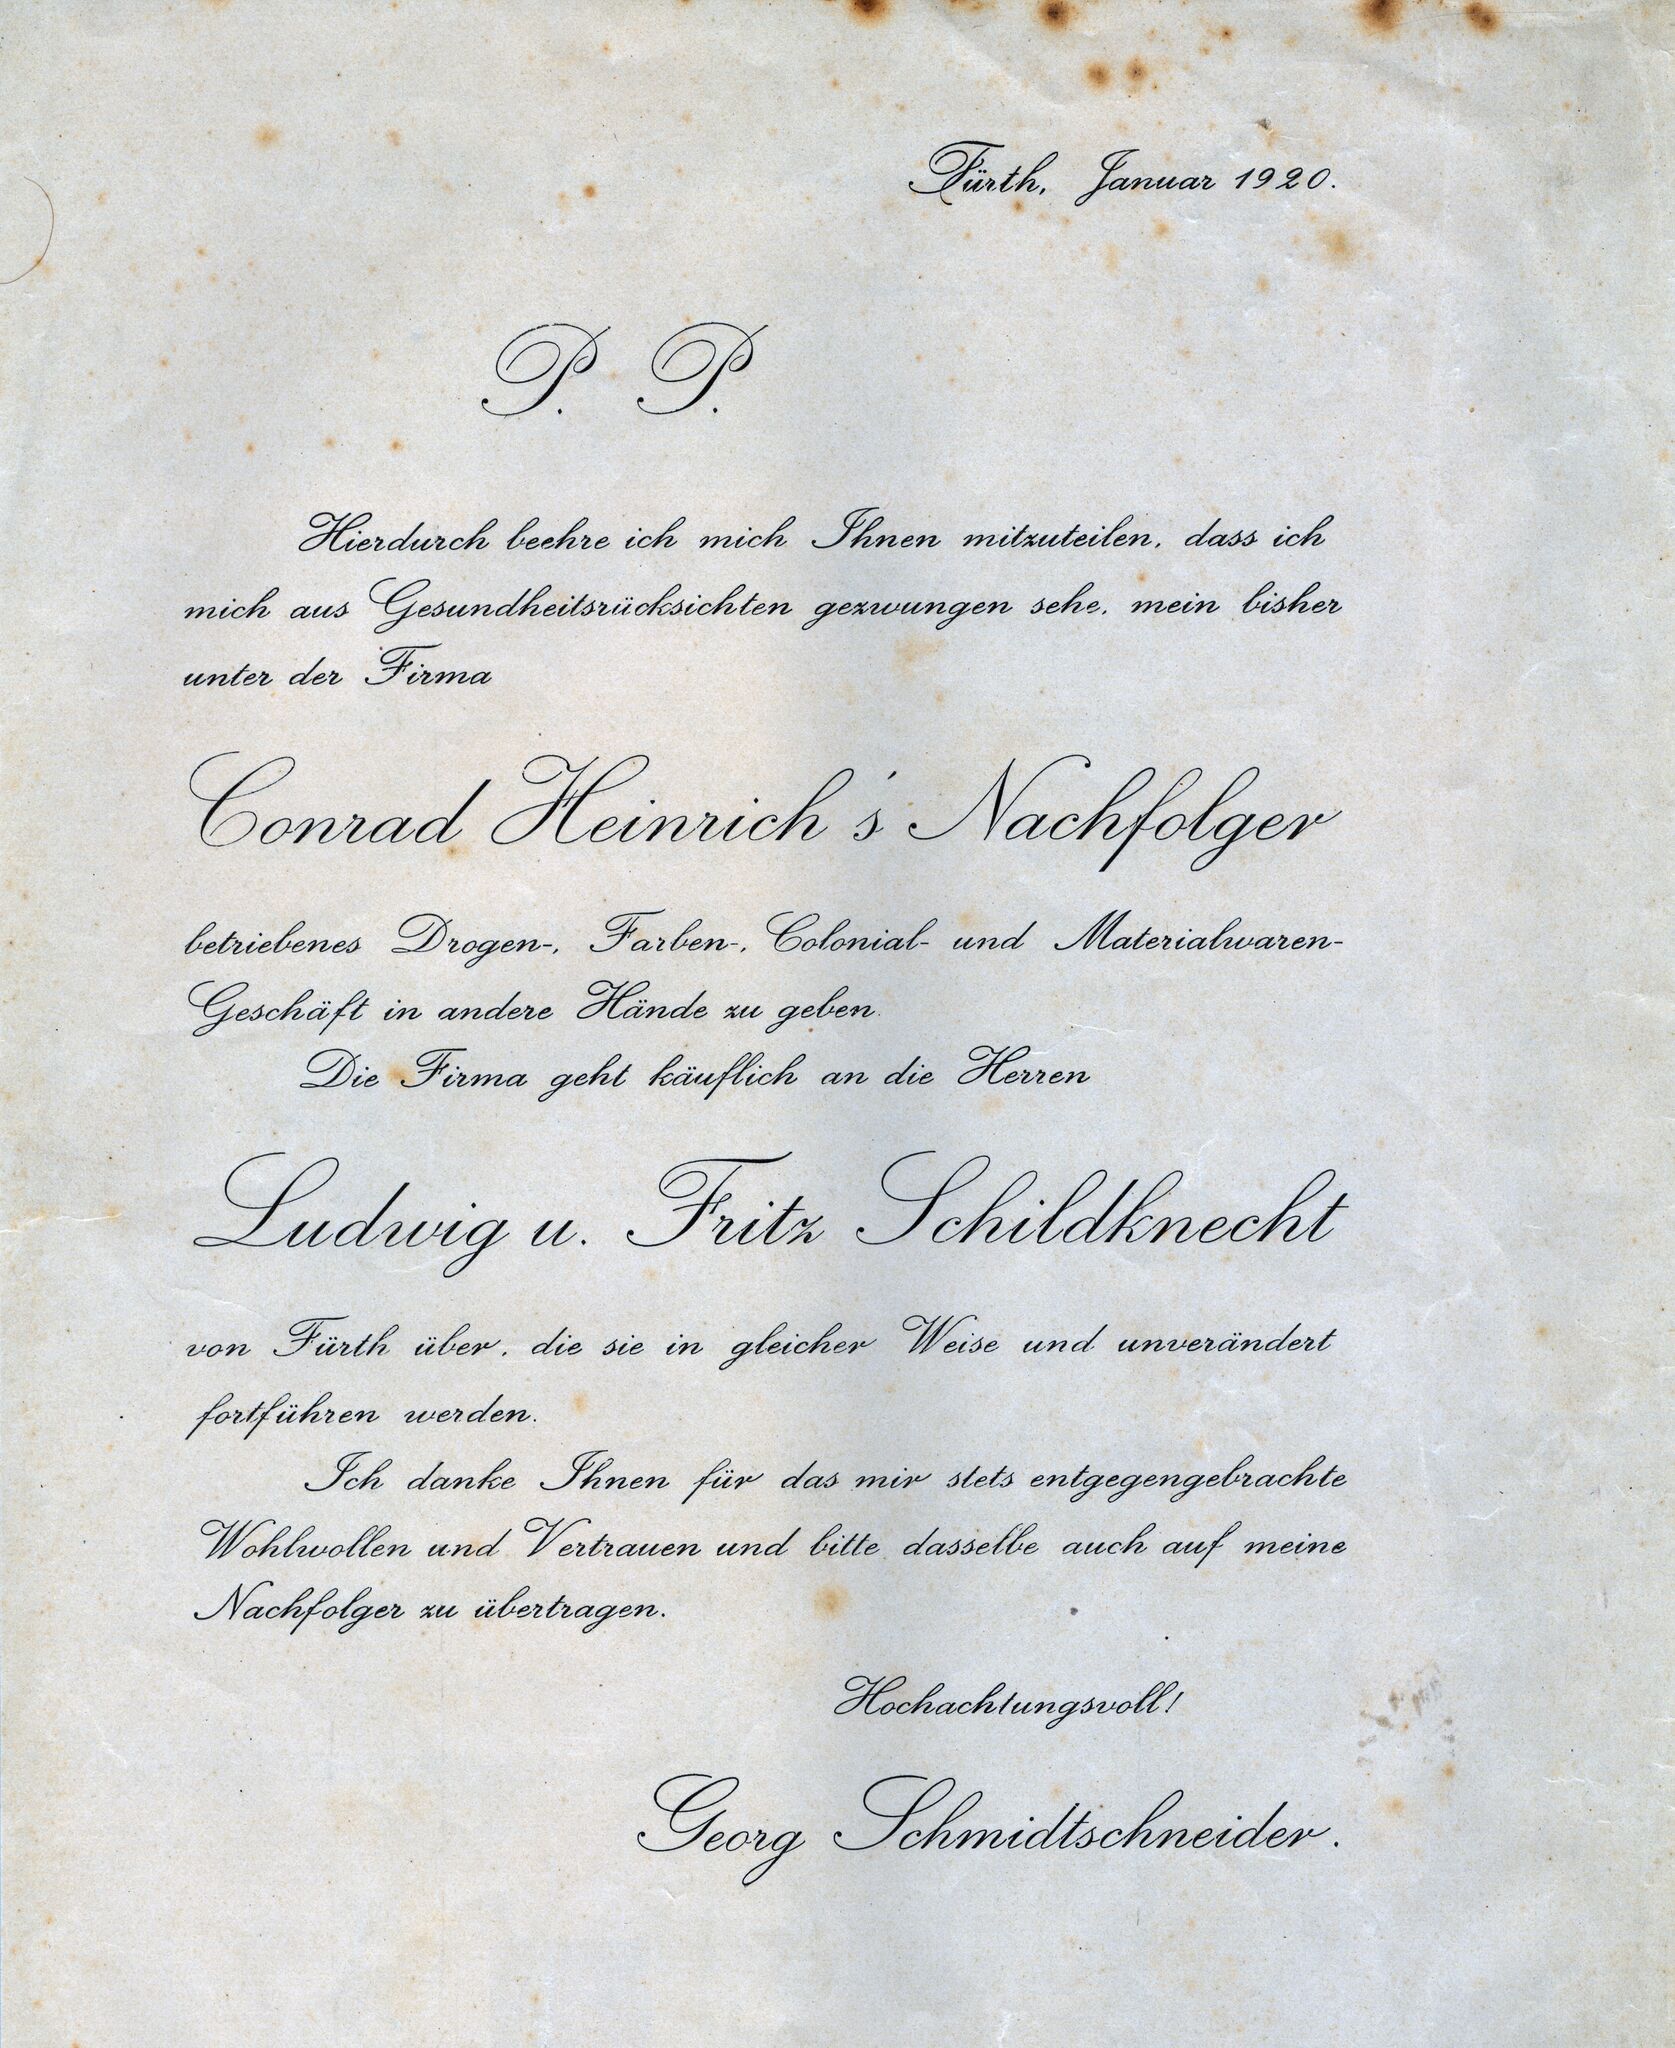 Fürth, Januar 1920.
P. P.
Hierdurch beehre ich mich Ihnen mitzuteilen, dass ich
mich aus Gesundheitsrücksichten gezwungen sehe, mein bisher
unter der Firma
Conrad Heinrich's Nachfolger
betriebenes Drogen-, Farben-, Colonial- und Materialwaren-
Geschäft in andere Hände zu geben.
Die Firma geht käuflich an die Herren
Ludwig u. Fritz Schildknecht
von Fürth über, die sie in gleicher Weise und unverändert
fortführen werden.
Ich danke Ihnen für das mir stets entgegengebrachte
Wohlwollen und Vertrauen und bitte dasselbe auch auf meine
Nachfolger zu übertragen.
Hochachtungsvoll!
Georg Schmidtschneider.